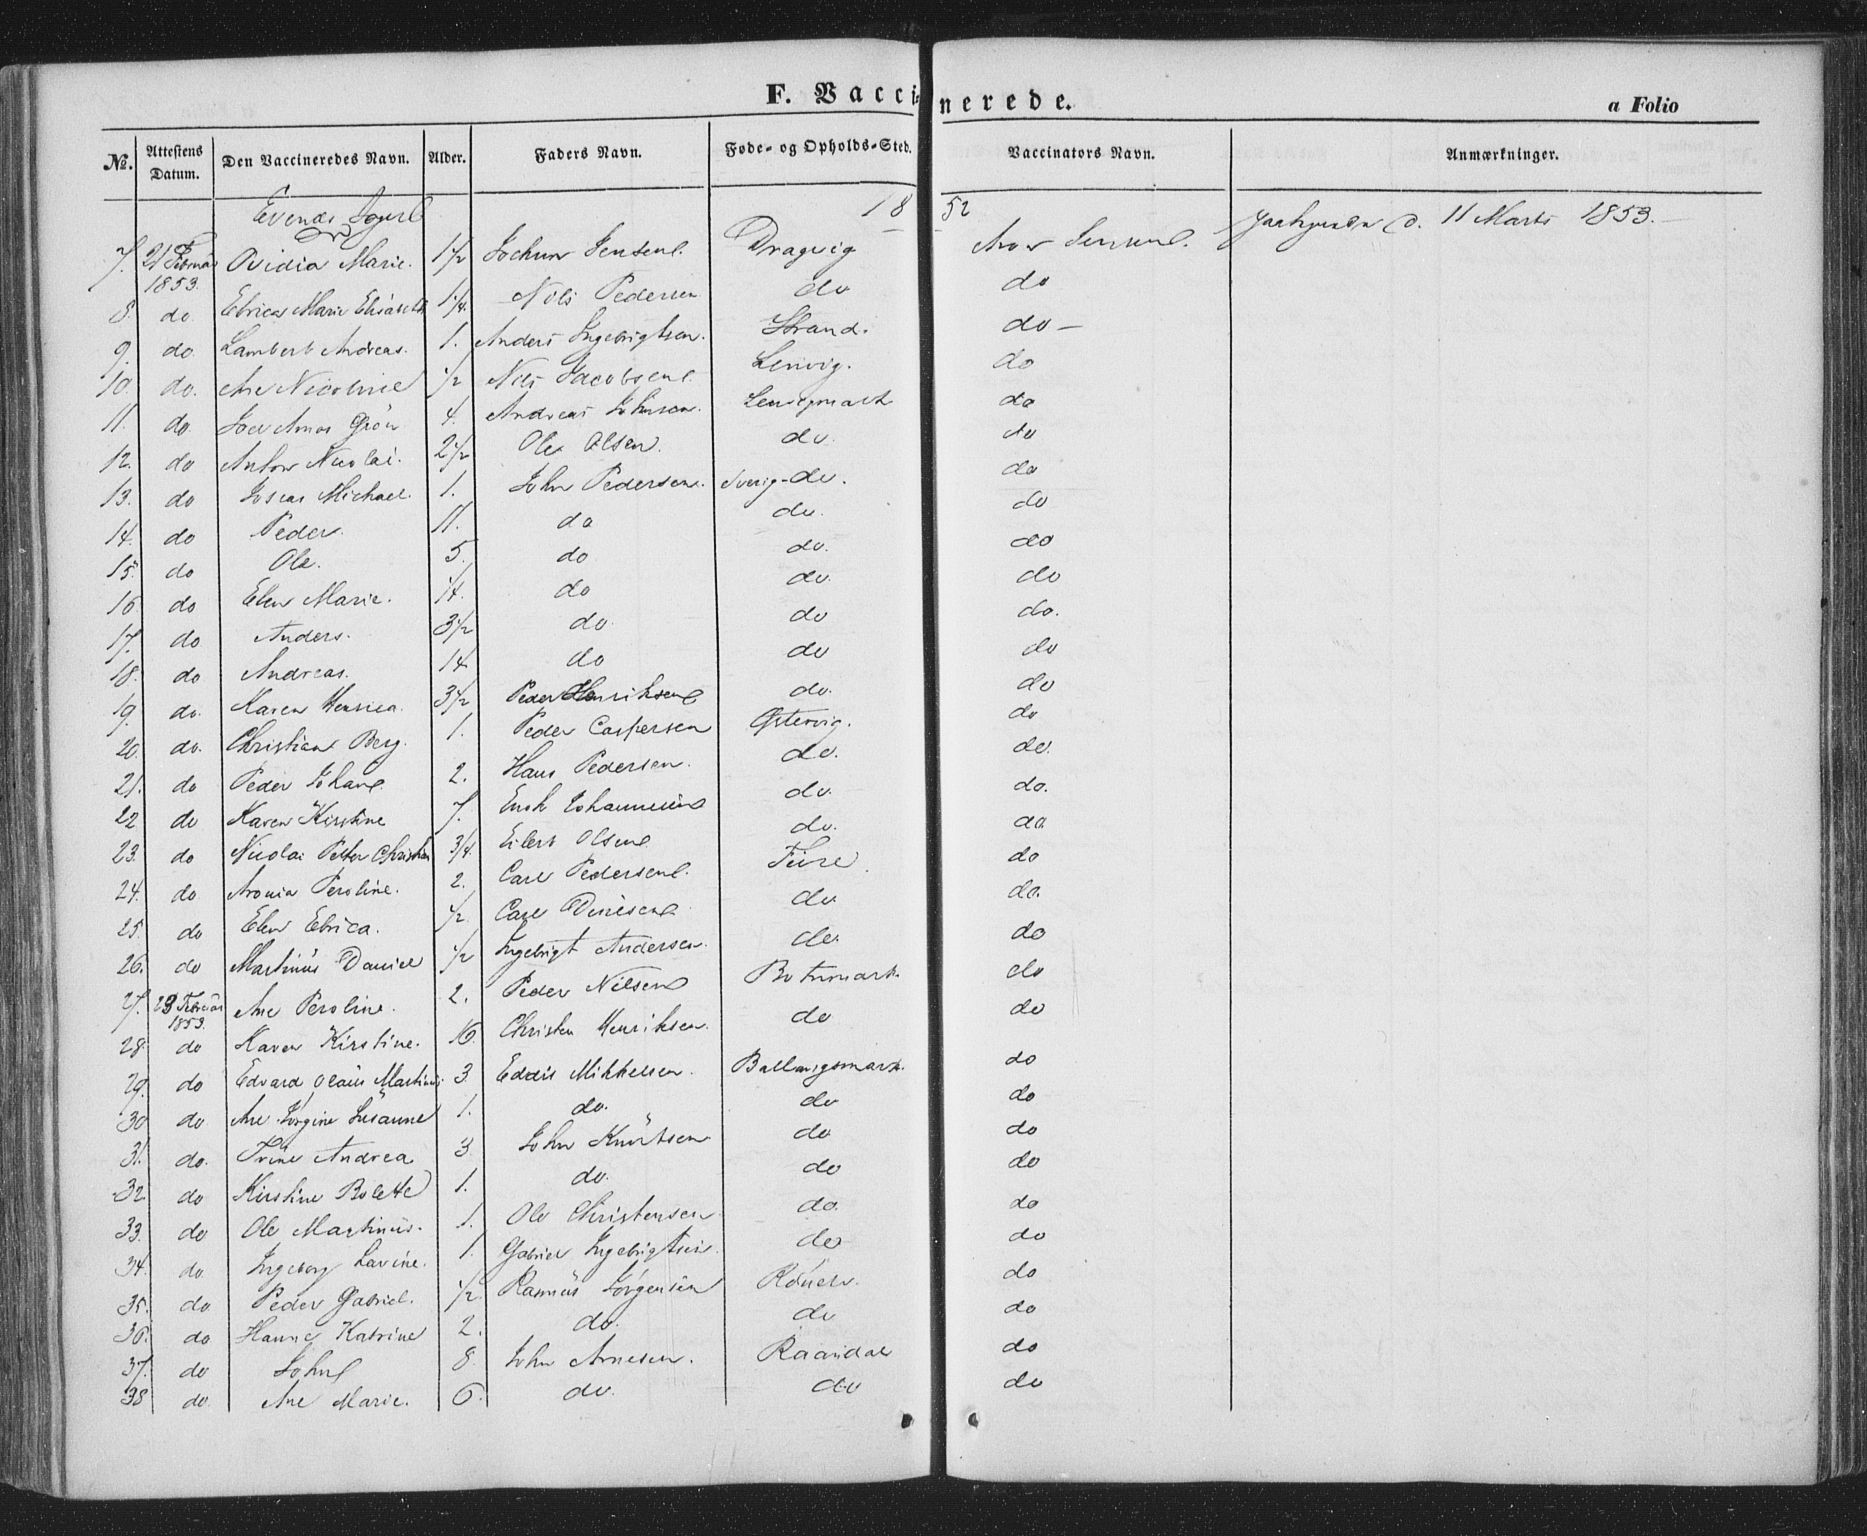 F. Vaccinerede.
a Folio
№. Attestens Datum. Den Vaccineredes Navn. Alder. Faders Navn. Føde- og Opholds-Sted. Vaccinators Navn. Anmærkninger.
Evenæs Sogn
1852
7. 21 Februar 1853. Ovidia Marie. 1½ Jochum Jensen. Dragvig 11 Marts 1853.
8. do Ebrica Marie Elisabeth 1¼. Nils Pedersen do do
9. do. Lambert Andreas. 1. Anders Ingebrigtsen. Strand. do
10. do. Ane Nicoline ½ Nils Jacobsen. Lenvig. do
11. do 4. Andreas Johnsen. do
12. do Anton Nicolai. 2½ Ole Olsen. do. do
13. do Michael. 1. John Pedersen. do. do
14. do Peder. 11. do do. do
15. do Ole. 5. do do. do
16 do Elen Marie. do do. do
17. do Anders. 3½ do. do do.
18. do Andreas. 14 do do do
19. do. Karen Henrica. 3½ Peder Henriksen do. do
20. do. Christian Berg. 1. Peder Caspersen Østervig. do
21. do Peder Johan 2. Hans Pedersen. do. do.
22 do Karen Kirstine 7. Enok Johannesen do. do.
23. do Nicolai Petter Christian 3/4. Eilert Olsen do. do.
24. do Aronia Peroline. 2. Carl Pedersen. do
25. do Elen Ebrica. ½. Carl do do.
26. do Martinus Daniel ½ Ingebrigt Andersen. do. do
27. 23 Februar 1853. Ane Peroline. 2. Peder Nilsen Botnmark. do
28. do Karen Kirstine. 16. Christen Henriksen. do do
29. do Edvard Olaus Martinus 3 Eddis Mikkelsen. Ballangsmark. do
30 do Ane Jørgine Susanne 1. do. do do
31. do. Trine Andrea 3 John Knutsen do do
32 do Kirstine Bolette 1. do. do do
33. do Ole Martinus. 1. Ole Christensen do. do
34. do Ingeborg Lavine. 1. Gabriel Ingebrigtsen. do do
35. do Peder Gabriel. ½. Rasmus Jørgensen do
36. do Hanne Katrine 2. do. do do
37. do John 8. John Arnesen. Raandal do
38 do Ane Marie. 6. do. do do